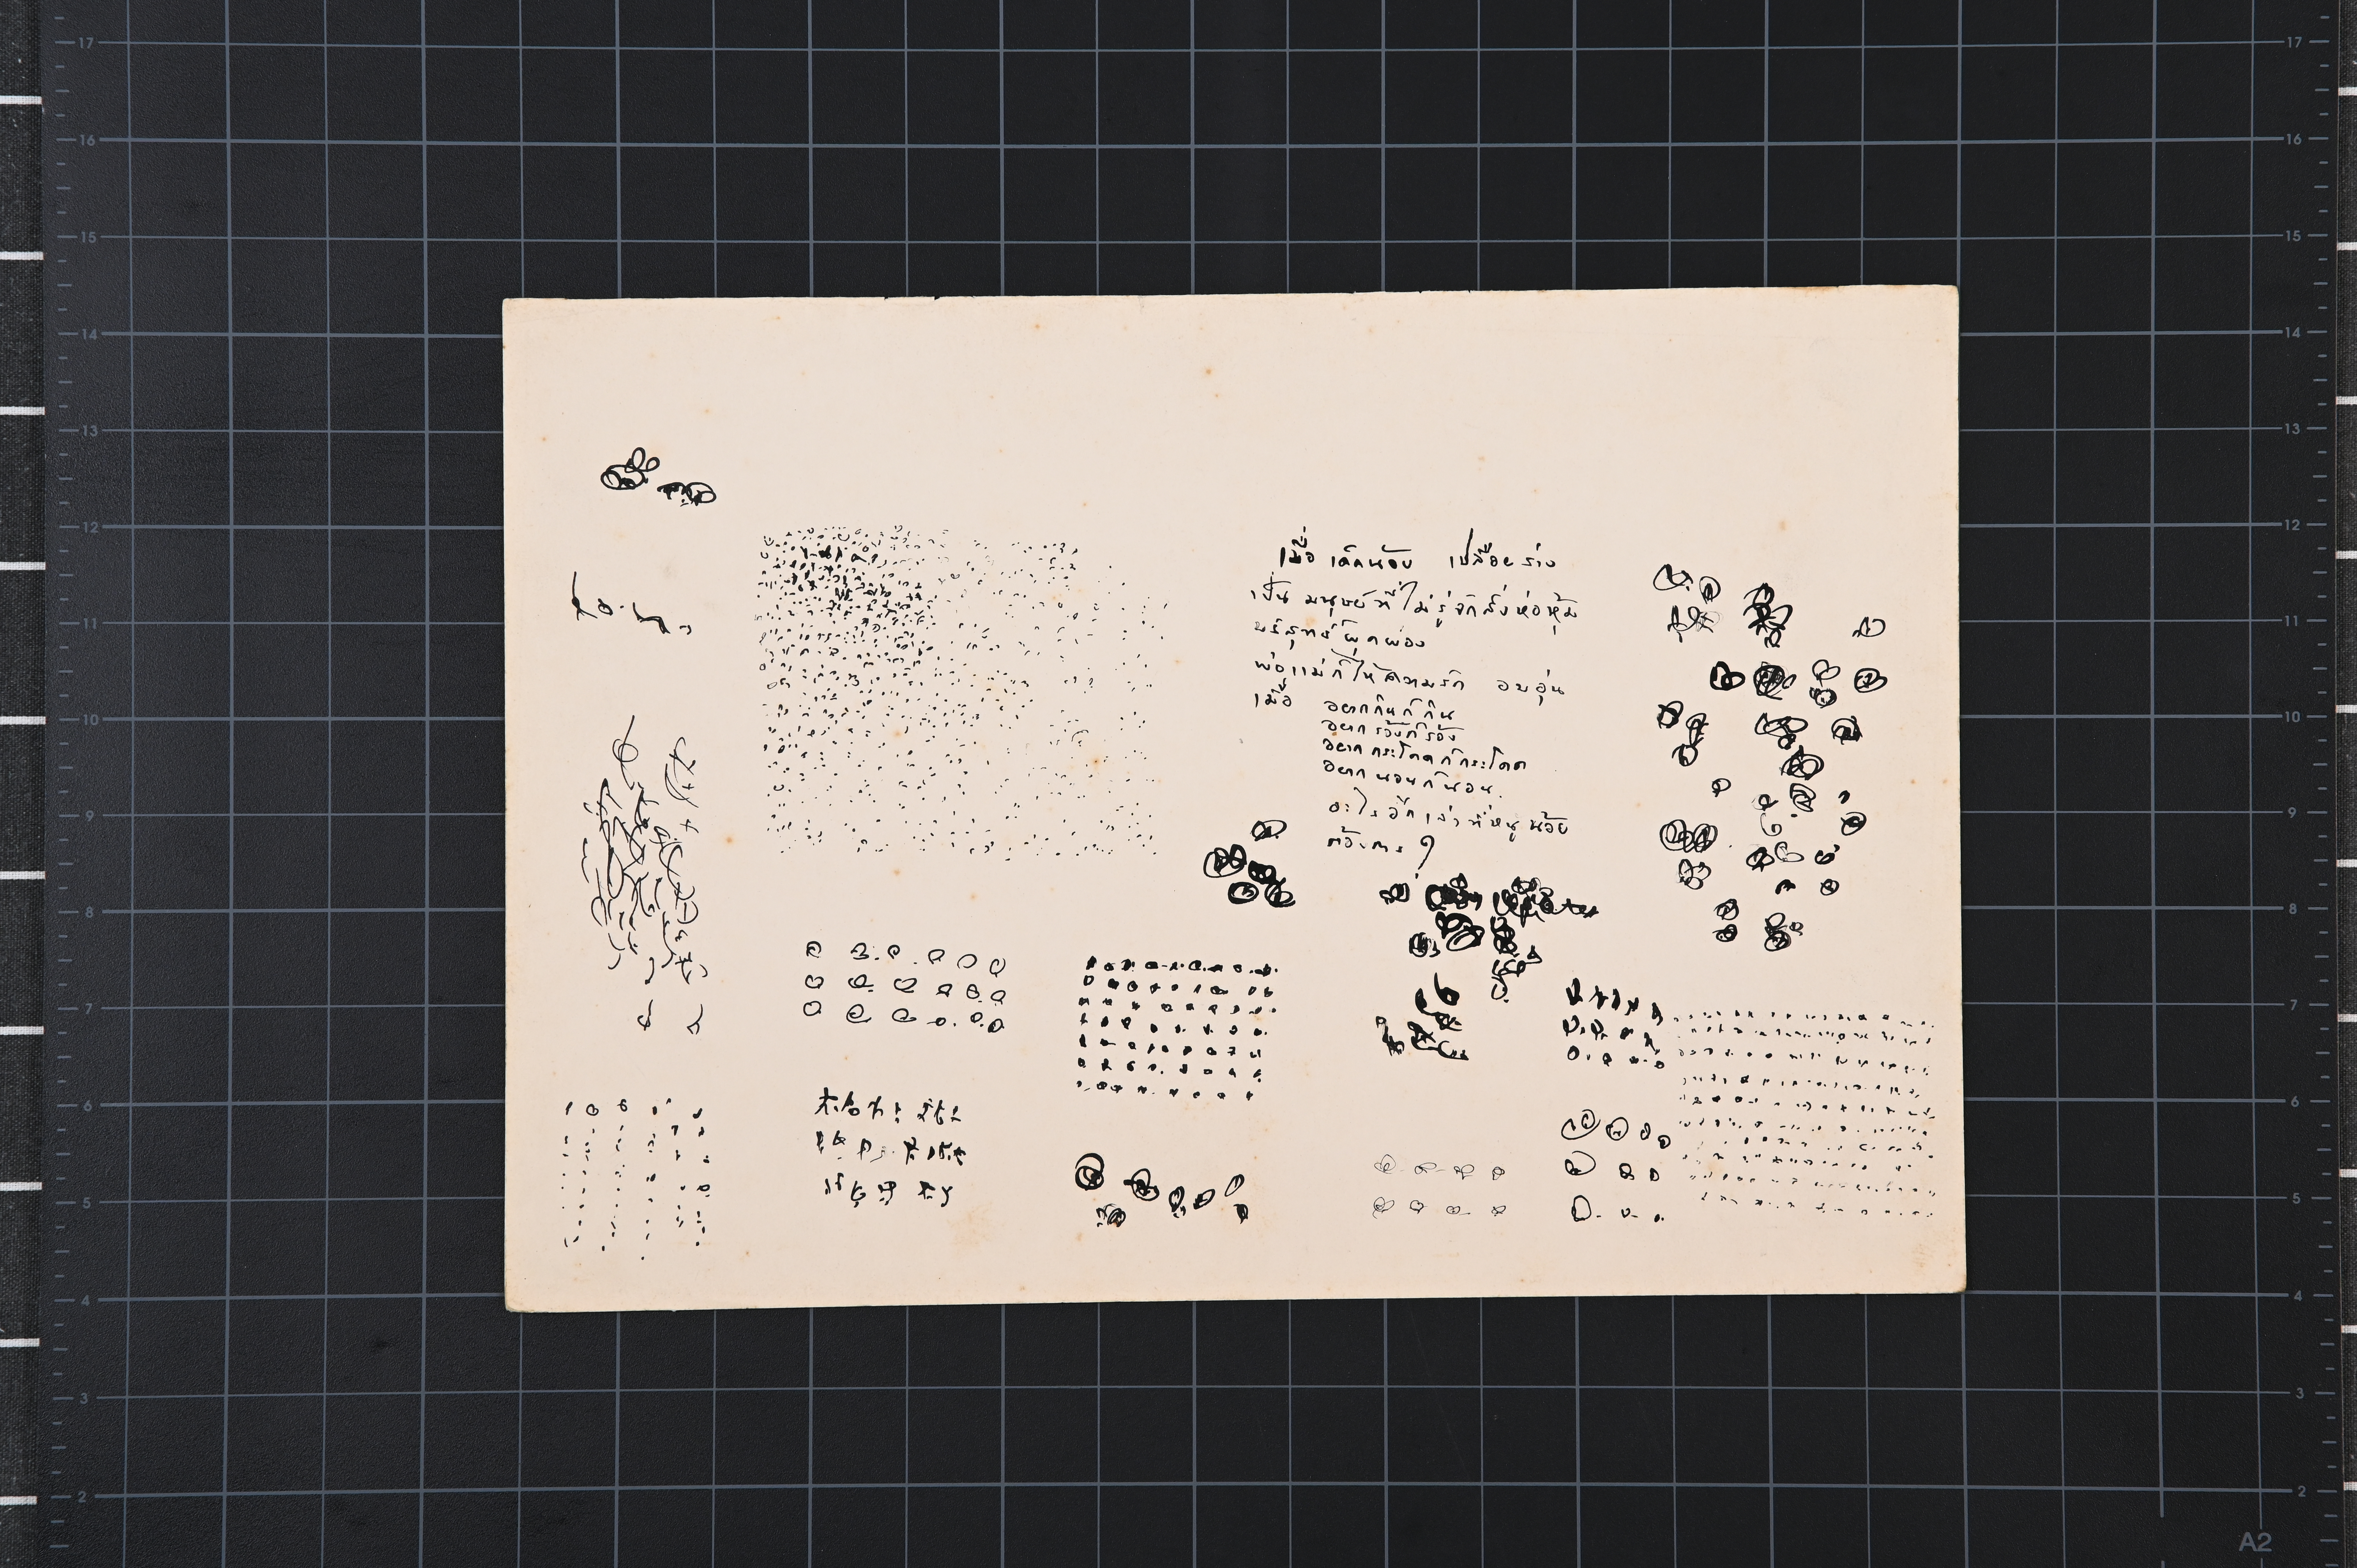 เมื่อ เด็กน้อย เปลือยร่าง
เป็น มนุษย์ที่ไม่รู้จักสิ่งห่อหุ้ม
บริสุทธิ์ ผุดผ่อง
พ่อแม่ก็ให้ความรัก อบอุ่น
เมื่อ อยากกินก็กิน
อยากร้องก็ร้อง
อยากกระโดดก็กระโดด
อยากนอนก็นอน
อะไรอีกเล่าที่หนูน้อย
ต้องการ
17
16
15
14
13
12
11
10
9
8
7
6
5
4
3
2
17
16
15
14
13
12
11
10
9
8
7
6
5
4
3
2
A2